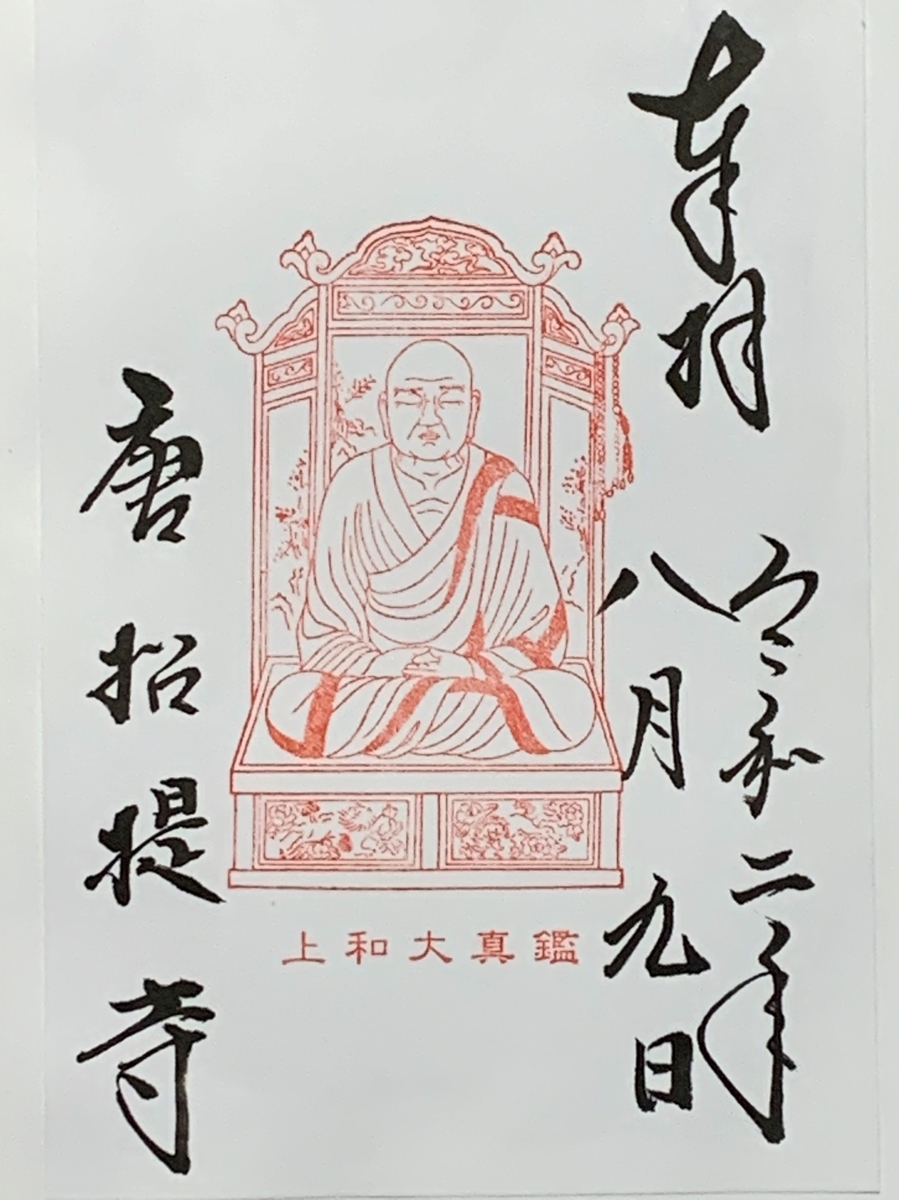 奉拝
令和二年
八月九日
鑑真大和上
唐招提寺